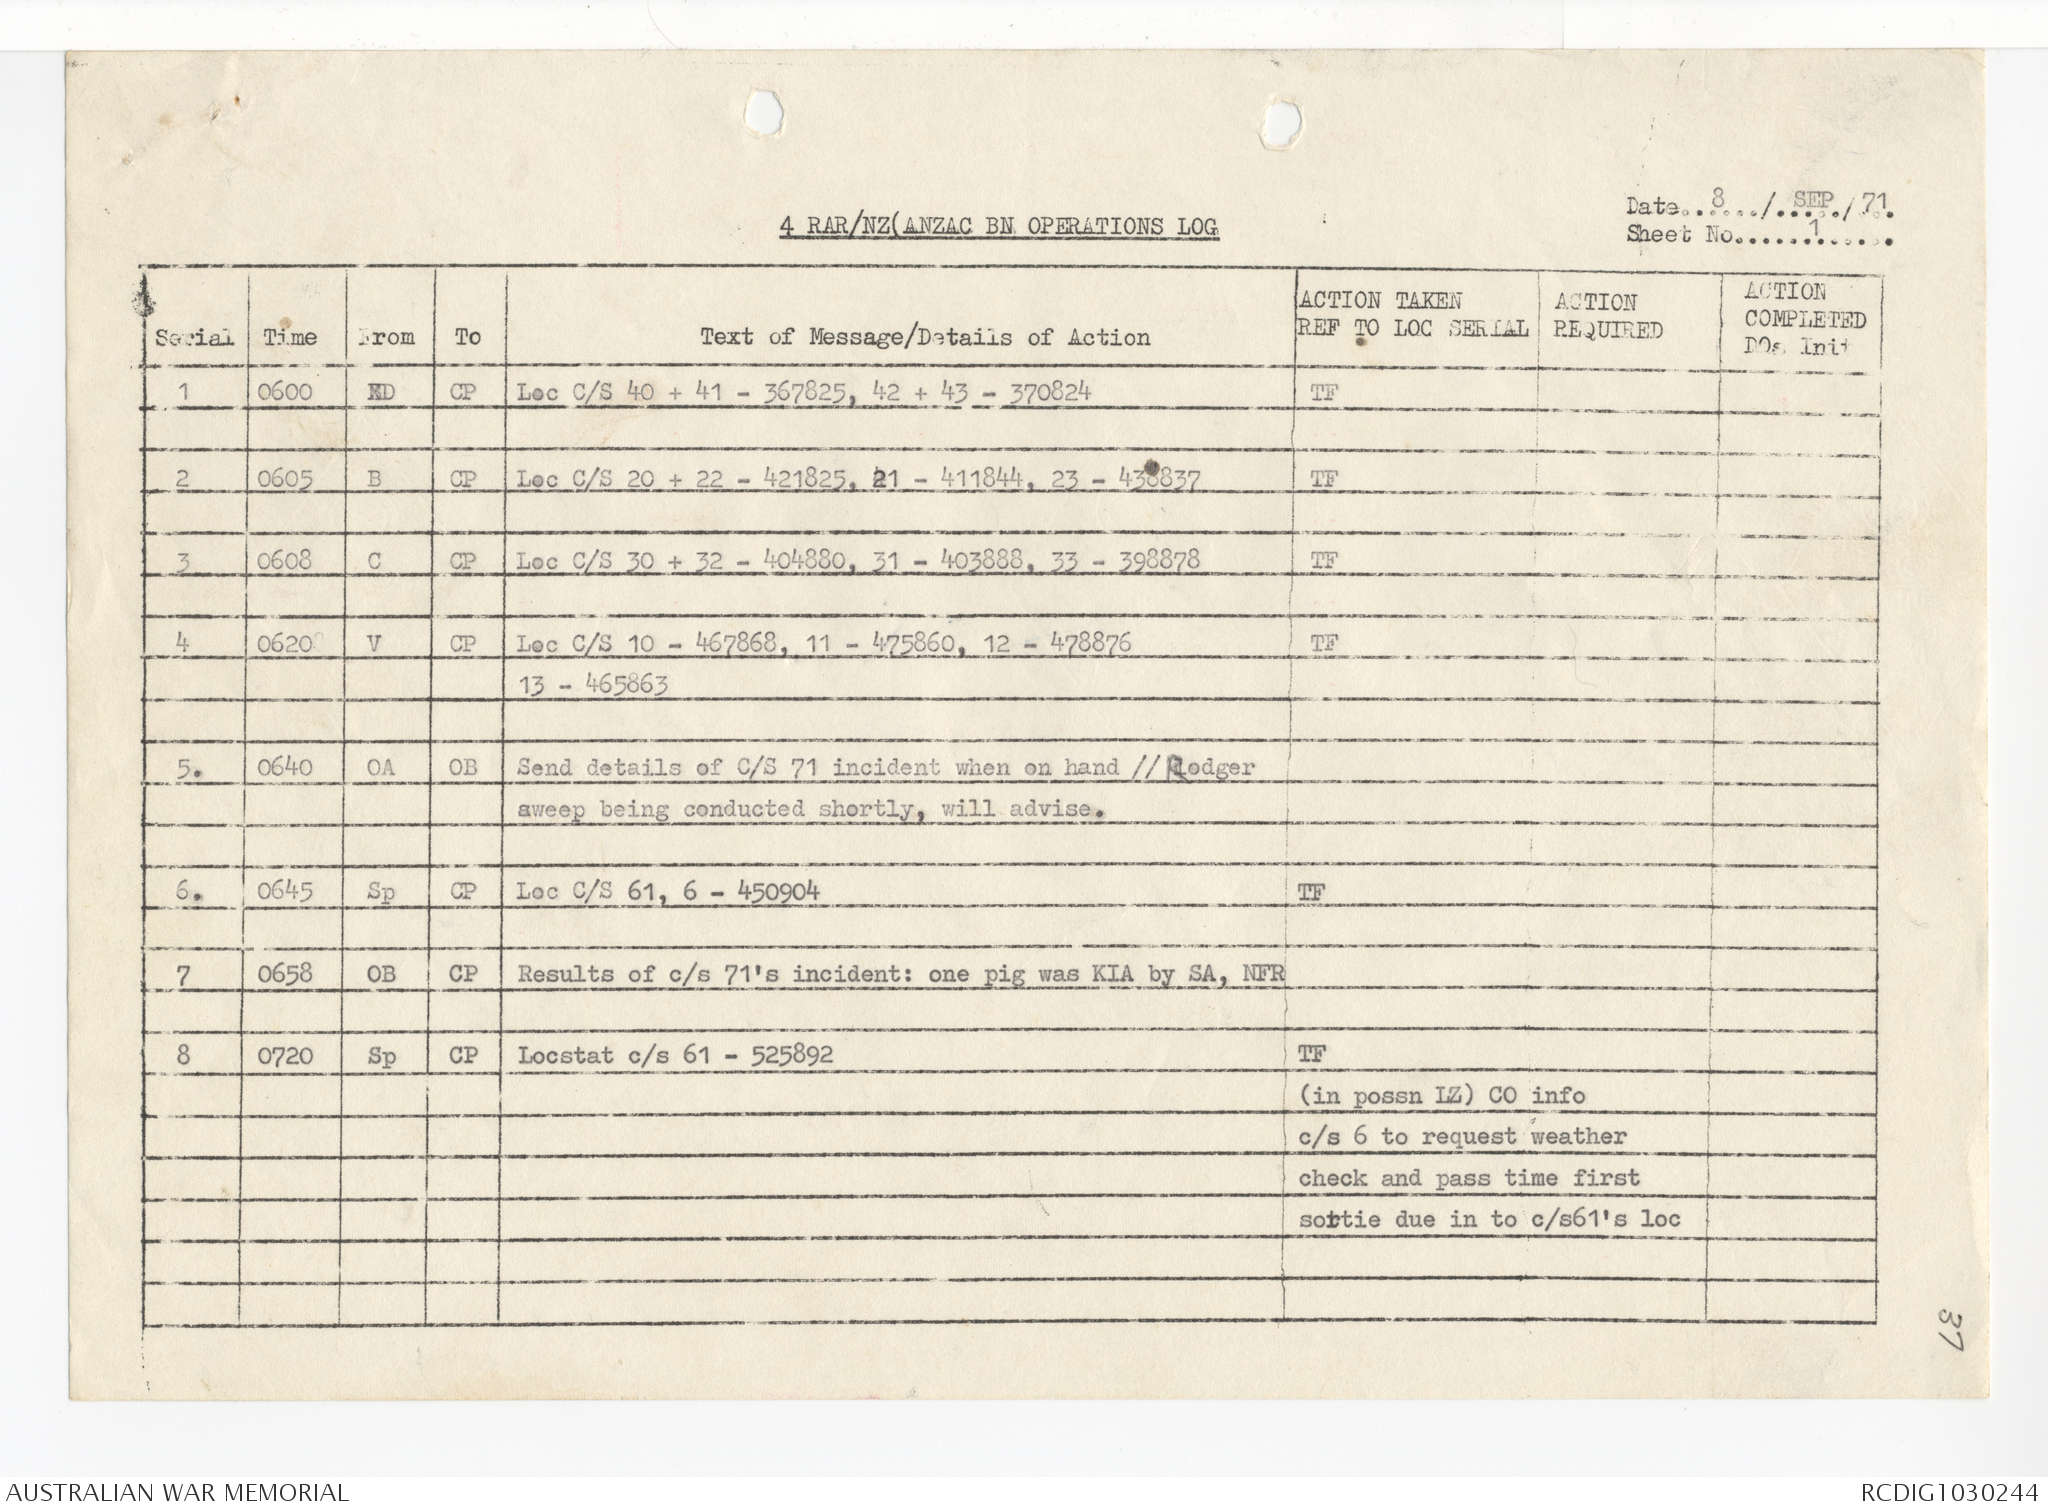 Date..8.../..SEP../.71.
4 RAR/NZ(ANZAC BN OPERATIONS LOG
Sheet No......1......
Serial Time From To Text of Message/Details of Action ACTION TAKEN REF TO LOC SERIAL ACTION REQUIRED ACTION COMPLETED DOs Init
1 0600 D CP Loc C/S 40 + 41 - 367825, 42 + 43 - 370824 TF
2 0605 B CP Loc C/S 20 + 22 - 421825, 21 - 411844, 23 - 438837 TF
3 0608 C CP Loc C/S 30 + 32 - 404880, 31 - 403888, 33 - 398878 TF
4 0620 V CP Loc C/S 10 - 467868, 11 - 475860, 12 - 478876 TF
13 - 465863
5. 0640 OA OB Send details of C/S 71 incident when on hand // Rodger
sweep being conducted shortly, will advise.
6. 0645 Sp CP Loc C/S 61, 6 - 450904 TF
7 0658 OB CP Results of c/s 71's incident: one pig was KIA by SA, NFR
8 0720 Sp CP Locstat c/s 61 - 525892 TF
(in possn LZ) CO info
c/s 6 to request weather
check and pass time first
sortie due in to c/s61's loc
37
AUSTRALIAN WAR MEMORIAL RCDIG1030244